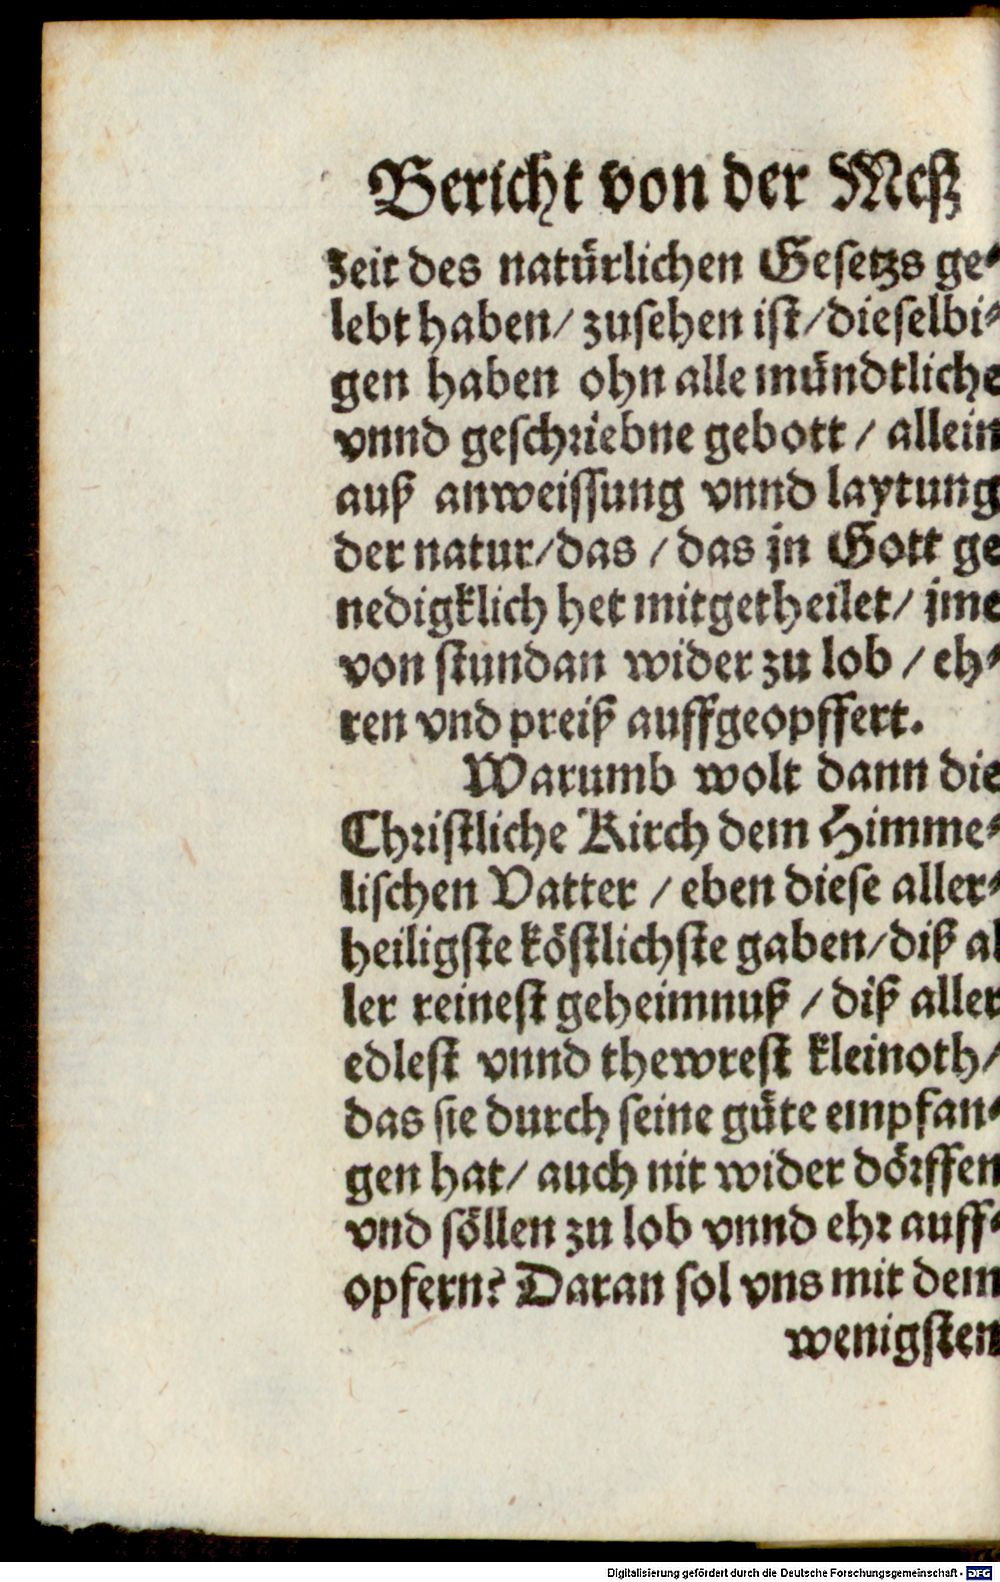 Bericht von der Meß
zeit des natürlichen Gesetzs ge-
lebt haben/ zusehen ist/ dieselbi-
gen haben ohn alle mündtliche
vnnd geschriebne gebott / allein
auß anweissung vnnd laytung
der natur/ das / das jn Gott ge
nedigklich het mitgetheilet/ jme
von stundan wider zu lob / eh-
ren vnd preiß auffgeopffert.
Warumb wolt dann die
Christliche Kirch dem Himme-
lischen Vatter / eben diese aller-
heiligste köstlichste gaben/ diß al
ler reinest geheimnuß / diß aller
edlest vnnd thewrest kleinoth/
das sie durch seine güte empfan-
gen hat/ auch nit wider dörffen
vnd söllen zu lob vnnd ehr auff-
opfern? Daran sol vns mit dem
wenigsten
Digitalisierung gefördert durch die Deutsche Forschungsgemeinschaft - DFG